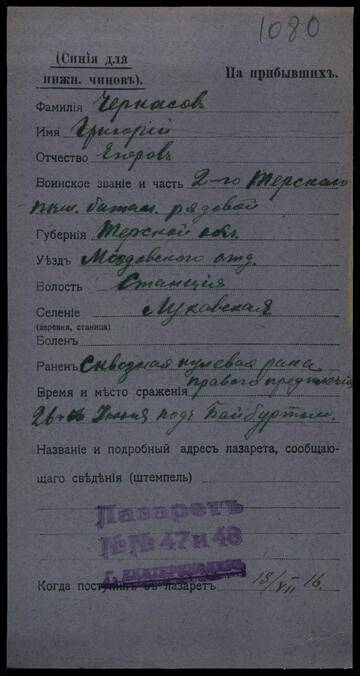 1080
(Синія для
нижн. чиновъ).
На прибывшихъ.
Фамилія Черкасовъ
Имя Григорій
Отчество Егоровъ
Воинское званіе и часть 2-го Терскаго
пл. батал. рядовой
Губернія Терской обл.
Уѣздъ Моздокскаго отд.
Волость Станция
Селеніе Луковская
(деревня, станица)
Боленъ
Раненъ Сквозная пулевая рана
Время и мѣсто сраженія праваго предплечія
26-го Іюня подъ Байбуртом.
Названіе и подробный адресъ лазарета, сообщаю-
щаго свѣдѣнія (штемпель)
Лазаретъ
№№ 47 и 48
Когда поступилъ въ лазаретъ 18/VII 16.